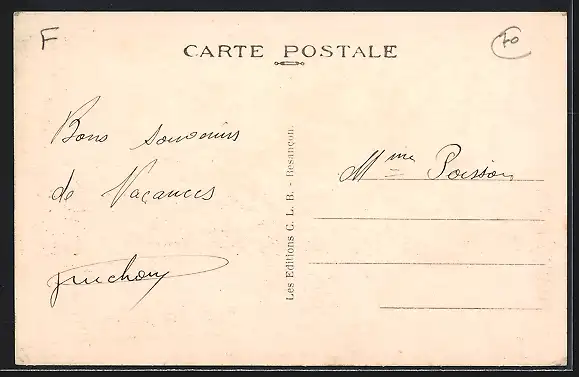 F
CARTE POSTALE
70
Bons souvenirs
de Vacances
Mme Poisson
Les Editions C. L. B. - Besançon.